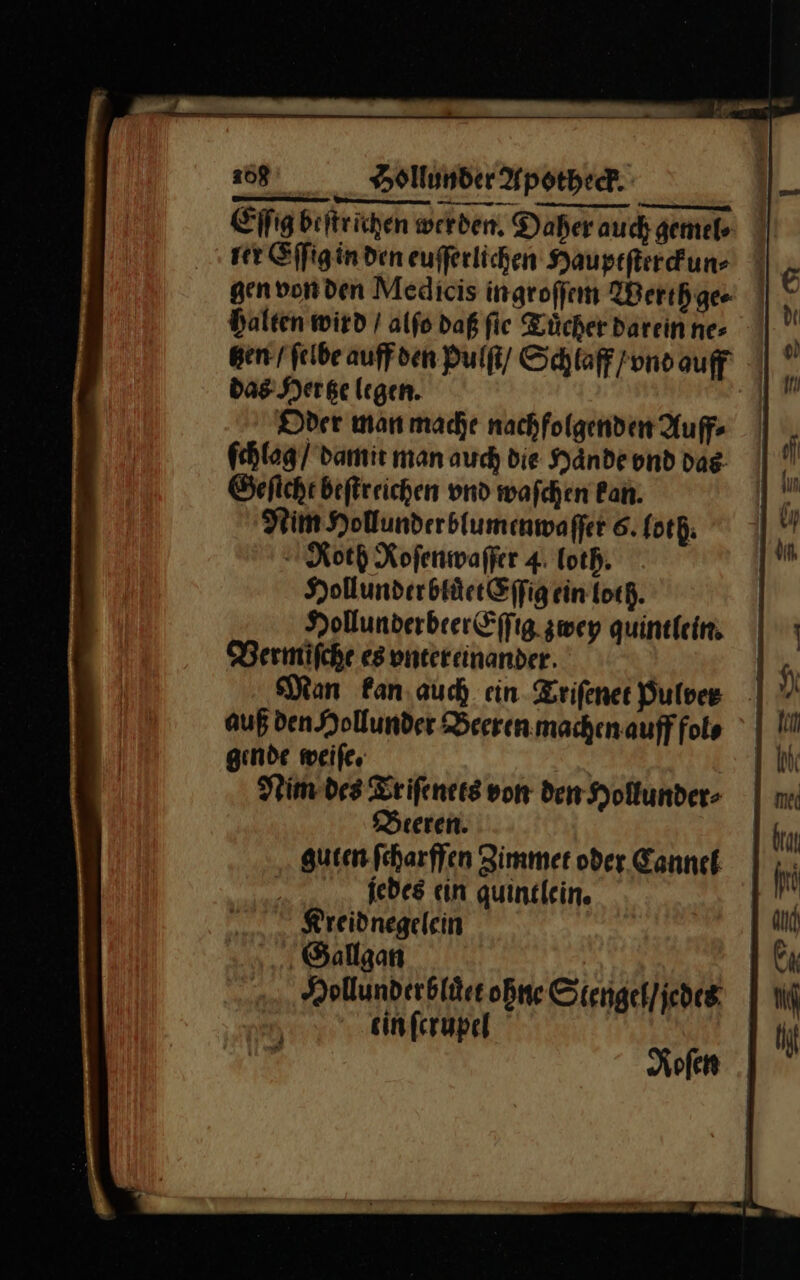 208 Hollunder Apotheck.
Eſſig beſtrichen werden. Daher auch gemel⸗
ter Eſſig in den euſſerlichen Hauptſterckun⸗
gen von den Medicis in groſſem Werth ge⸗
halten wird / alſo daß ſie Tuͤcher darein ne⸗
tzen / ſelbe auff den Pulſt / Schlaff / vnd auff
das Hertze legen.
Oder man mache nachfolgenden Auff⸗
ſchlag / damit man auch die Haͤnde vnd das
Geſicht beſtreichen vnd waſchen kan.
Nim Hollunderblumenwaſſer 6. loth.
Roth Roſenwaſſer 4. loth.
Hollunderbluͤet Eſſig ein loth.
Hollunderbeer Eſſig zwey quintlein.
Vermiſche es vntereinander.
Man kan auch ein Triſenet Pulver
auß den Hollunder Beeren machen auff fol⸗
gende weiſe.
Nim des Triſenets von den Hollunder⸗
Beeren.
guten ſcharffen Zimmet oder Cannel
jedes ein quintlein.
Kreidnegelein
Gallgan
Hollunderbluͤet ohne Stengel / jedes
ein ſcrupel
Roſen